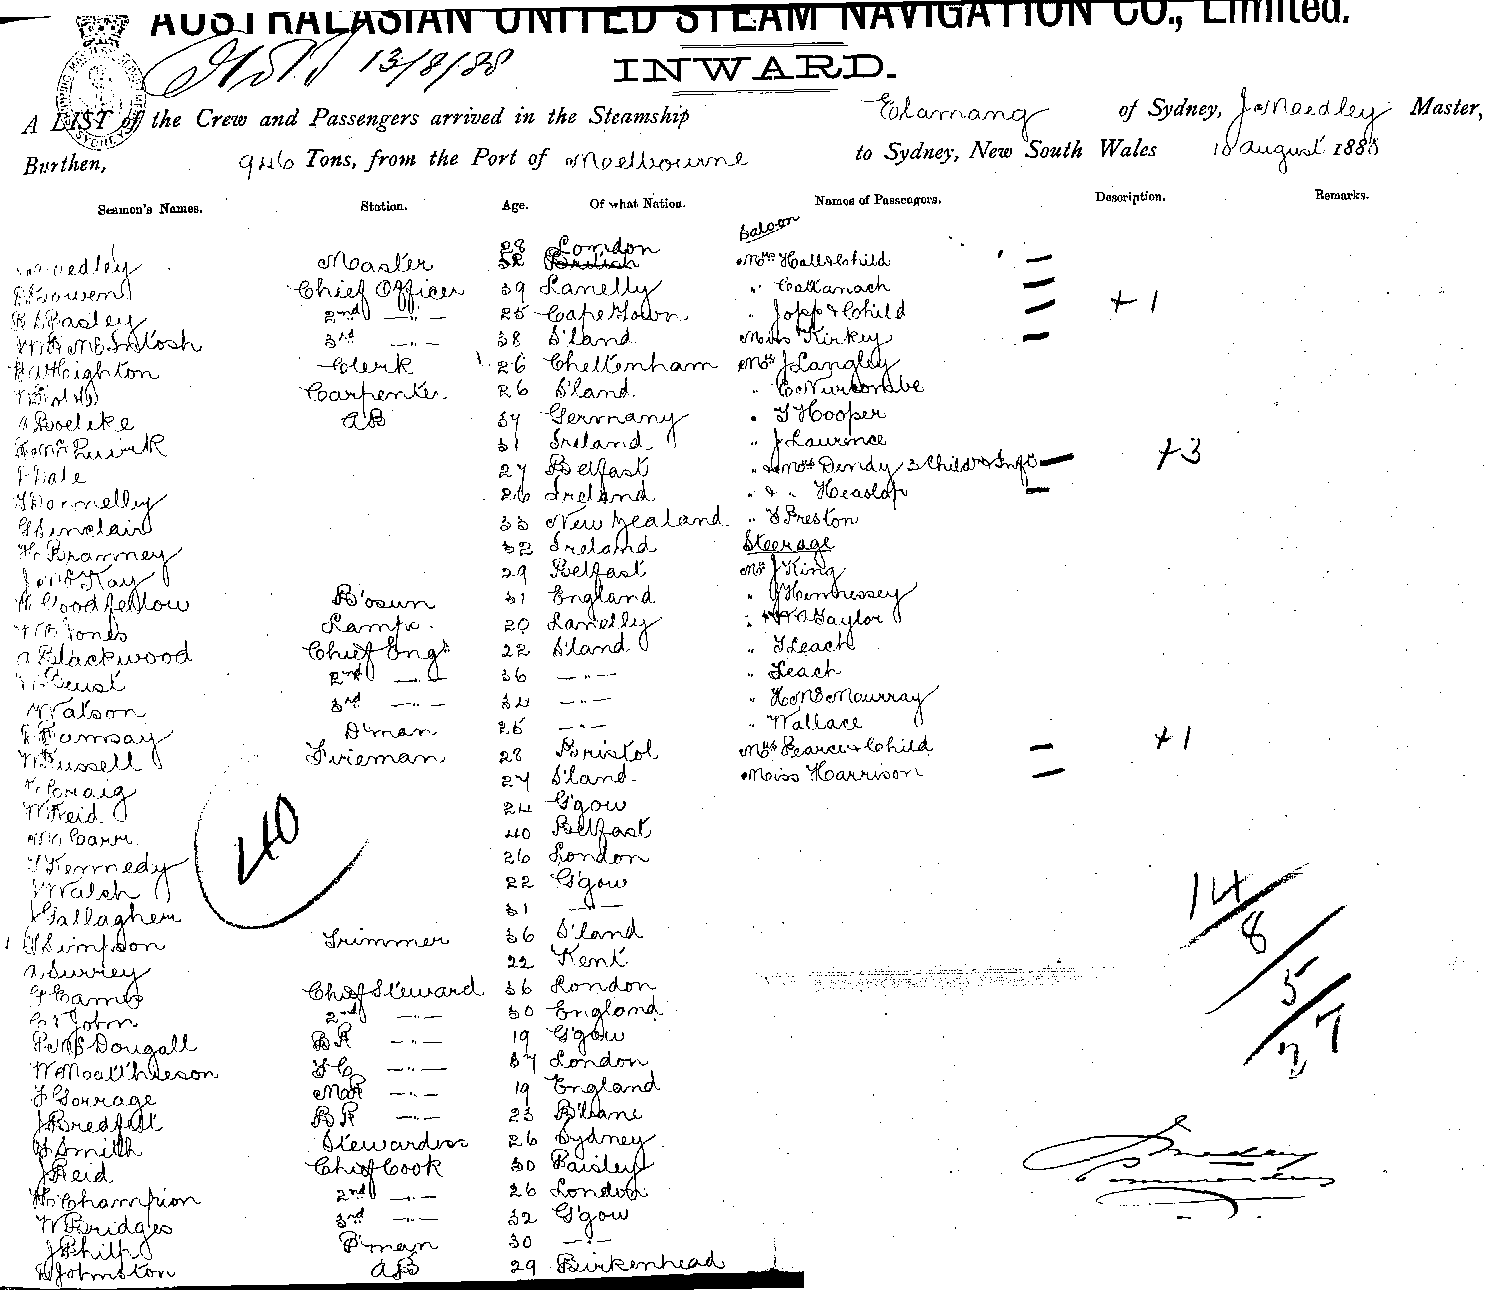 AUSTRALASIAN UNITED STEAM NAVIGATION CO., Limited.
13/8/88
INWARD.
A LIST of the Crew and Passengers arrived in the Steamship Elamang of Sydney, J Meedley Master,
Burthen, 946 Tons, from the Port of Melbourne to Sydney, New South Wales 10 August 1888
Seamen's Names. Station. Age. Of what Nation. Names of Passengers. Description. Remarks.
Saloon
28 London
Meedley Master 52 British Mrs Hall & Child —
Bowen Chief Officer 39 Lanelly " Callanach —
Pasley 2nd —"— 25 Cape Town " Jopp & Child — +1
McIntosh 3rd —"— 38 S'land Miss Kirkey —
Heighton Clerk 26 Cheltenham Mr J Langley
Carpenter 26 S'land " C Nurcombe
Boelike AB 37 Germany " T Hooper
Quirk 31 Ireland " J Laurence
Hale 27 Belfast " & Mrs Dendy 3 Child & Inft — +3
Donnelly 26 Ireland " & " Heaslop —
G Sinclair 33 New Zealand " T Preston
Branney 32 Ireland Steerage
Kay 29 Belfast Mr J King
Goodfellow B'osun 31 England " J Hennessey
Jones Lamps 20 Lanelly " Taylor
A Blackwood Chief Engr 22 S'land " T Leach
Beust 2nd —"— 36 —"— " Leach
Watson 3rd —"— 34 —"— " H McMurray
Ramsay D'man 25 —"— " Wallace
W Russell Fireman 28 Bristol Mrs Pearce & Child — +1
Craig 27 S'land Miss Harrison —
W Reid 24 G'gow
Carr 40 Belfast
T Kennedy 26 London
Walsh 22 G'gow
J Gallagher 31 —"—
40
Simpson Trimmer 36 S'land
A Surrey 22 Kent
Cames Chief Steward 36 London
St John 2nd —"— 30 England
P McDougall BR —"— 19 G'gow
W Matthieson FC —"— 37 London
F Gorrage MR —"— 19 England
J Bredfelt BR —"— 23 B'bane
Smith Stewardess 26 Sydney
J Reid Chief Cook 30 Paisley
H Champion 2nd —"— 26 London
W Bridges 3rd —"— 32 G'gow
J Philp P'man 30 —"—
D Johnston AB 29 Birkenhead
14/8/5/27
Meedley
Commander